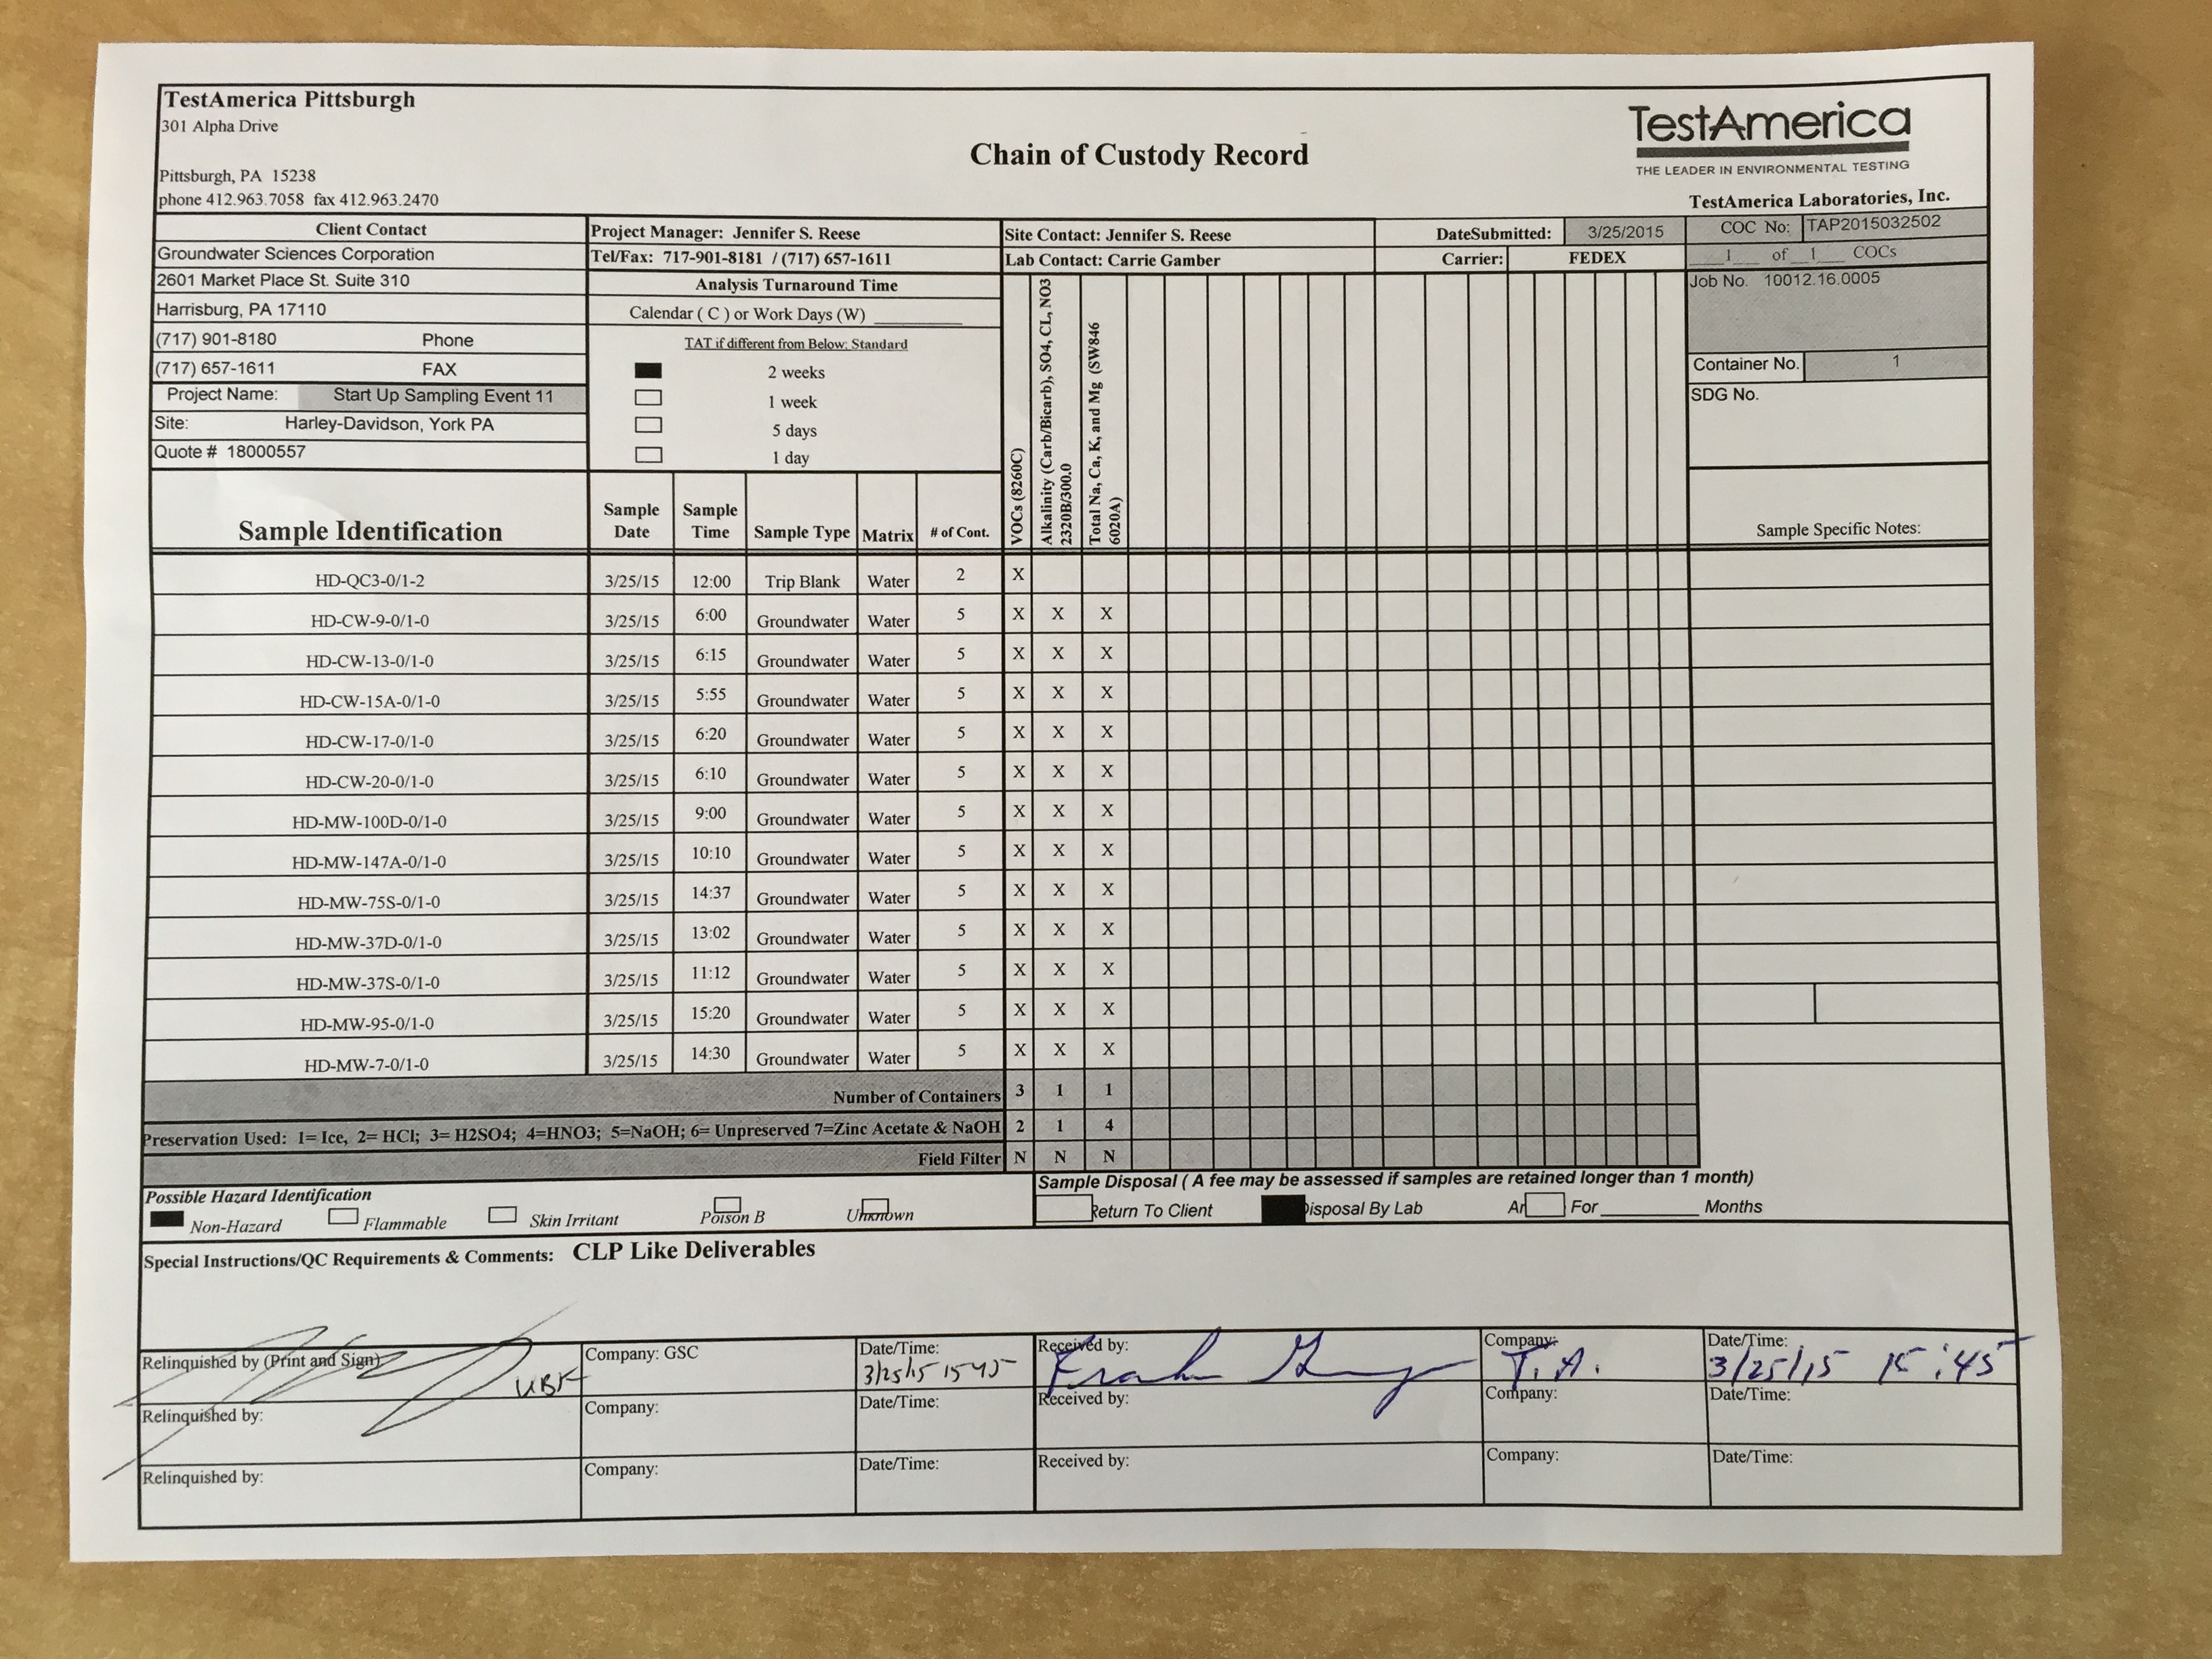 TestAmerica Pittsburgh
301 Alpha Drive
Pittsburgh, PA 15238
phone 412.963.7058 fax 412.963.2470
Chain of Custody Record
TestAmerica
THE LEADER IN ENVIRONMENTAL TESTING
TestAmerica Laboratories, Inc.
Client Contact
Groundwater Sciences Corporation
2601 Market Place St. Suite 310
Harrisburg, PA 17110
(717) 901-8180 Phone
(717) 657-1611 FAX
Project Name: Start Up Sampling Event 11
Site: Harley-Davidson, York PA
Quote # 18000557
Project Manager: Jennifer S. Reese
Tel/Fax: 717-901-8181 / (717) 657-1611
Analysis Turnaround Time
Calendar ( C ) or Work Days (W) ________
TAT if different from Below: Standard
2 weeks
1 week
5 days
1 day
Site Contact: Jennifer S. Reese
Lab Contact: Carrie Gamber
DateSubmitted: 3/25/2015
Carrier: FEDEX
COC No: TAP2015032502
__1__ of __1__ COCs
Job No. 10012.16.0005
Container No. 1
SDG No.
Sample Identification Sample Date Sample Time Sample Type Matrix # of Cont.
VOCs (8260C)
Alkalinity (Carb/Bicarb), SO4, CL, NO3
2320B/300.0
Total Na, Ca, K, and Mg (SW846
6020A)
Sample Specific Notes:
HD-QC3-0/1-2 3/25/15 12:00 Trip Blank Water 2 X
HD-CW-9-0/1-0 3/25/15 6:00 Groundwater Water 5 X X X
HD-CW-13-0/1-0 3/25/15 6:15 Groundwater Water 5 X X X
HD-CW-15A-0/1-0 3/25/15 5:55 Groundwater Water 5 X X X
HD-CW-17-0/1-0 3/25/15 6:20 Groundwater Water 5 X X X
HD-CW-20-0/1-0 3/25/15 6:10 Groundwater Water 5 X X X
HD-MW-100D-0/1-0 3/25/15 9:00 Groundwater Water 5 X X X
HD-MW-147A-0/1-0 3/25/15 10:10 Groundwater Water 5 X X X
HD-MW-75S-0/1-0 3/25/15 14:37 Groundwater Water 5 X X X
HD-MW-37D-0/1-0 3/25/15 13:02 Groundwater Water 5 X X X
HD-MW-37S-0/1-0 3/25/15 11:12 Groundwater Water 5 X X X
HD-MW-95-0/1-0 3/25/15 15:20 Groundwater Water 5 X X X
HD-MW-7-0/1-0 3/25/15 14:30 Groundwater Water 5 X X X
Number of Containers 3 1 1
Preservation Used: 1= Ice, 2= HCl; 3= H2SO4; 4=HNO3; 5=NaOH; 6= Unpreserved 7=Zinc Acetate & NaOH 2 1 4
Field Filter N N N
Possible Hazard Identification
Non-Hazard Flammable Skin Irritant Poison B Unknown
Sample Disposal ( A fee may be assessed if samples are retained longer than 1 month)
Return To Client Disposal By Lab Ar For ________ Months
Special Instructions/QC Requirements & Comments: CLP Like Deliverables
Relinquished by (Print and Sign): Company: GSC Date/Time: 3/25/15 1545 Received by: Frank Company: T.A. Date/Time: 3/25/15 15:45
Relinquished by: Company: Date/Time: Received by: Company: Date/Time:
Relinquished by: Company: Date/Time: Received by: Company: Date/Time: